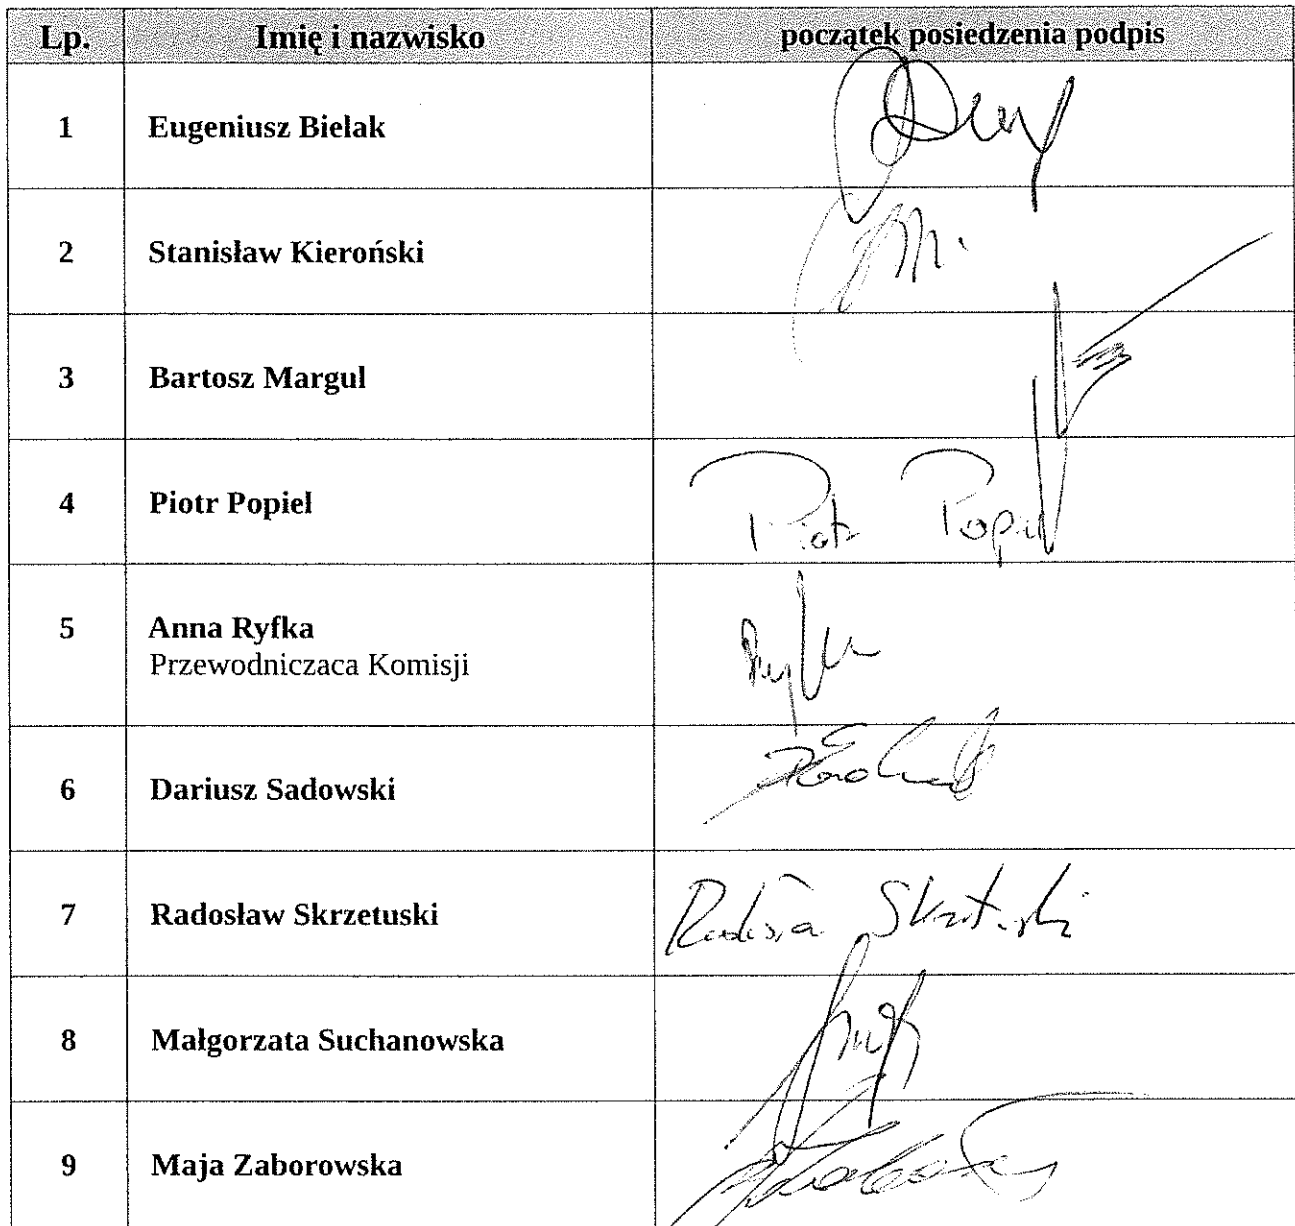 Lp. Imię i nazwisko początek posiedzenia podpis
1 Eugeniusz Bielak
2 Stanisław Kieroński
3 Bartosz Margul
4 Piotr Popiel Piotr Popiel
5 Anna Ryfka
Przewodniczaca Komisji
6 Dariusz Sadowski
7 Radosław Skrzetuski
8 Małgorzata Suchanowska
9 Maja Zaborowska